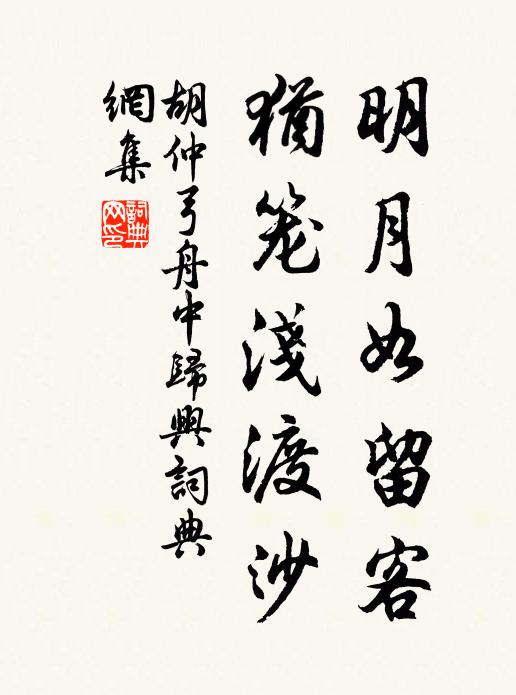 明月如留客
猶笼淺渡沙
胡仲弓舟中歸興詞典
網集
詞典網印